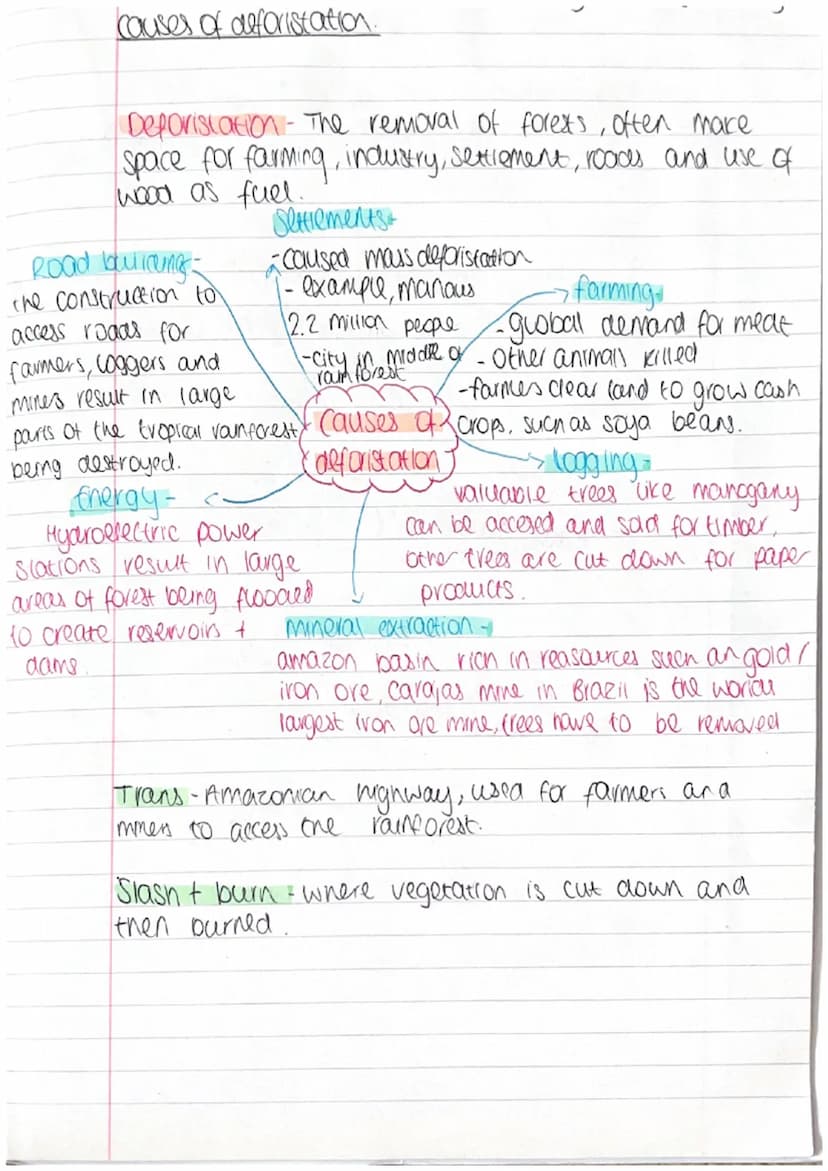 Causes of deforistation.
Deforistation - The removal of forests, often make
space for farming, industry, settlement, roads and use of
wood as fuel.
Settlements-
-caused mass deforistation
- example, manaus
2.2 million people
-city in middle of
rainforest
Road building-
the construction to
access roads for
farmers, loggers and
mines result in large
parts of the tropical rainforest
being destroyed.
farming-
-global demand for meat
- other animals killed
-farmes clear land to grow cash
crops, such as soya beans.
Causes of
deforistation
logging-
valuable trees like mahogany
can be accesed and sold for timber,
other trees are cut down for paper
products.
Energy-
Hydroelectric power
stations result in large
areas of forest being flooded
to create reservoirs +
dams.
mineral extraction-
amazon basin rich in reasources such as gold/
iron ore, Carajas mine in Brazil is the worlds
largest iron ore mine, trees have to be removed
Trans-Amazonian highway, used for farmers and
miners to access the rainforest.
Slash + burn - where vegetation is cut down and
then burned.